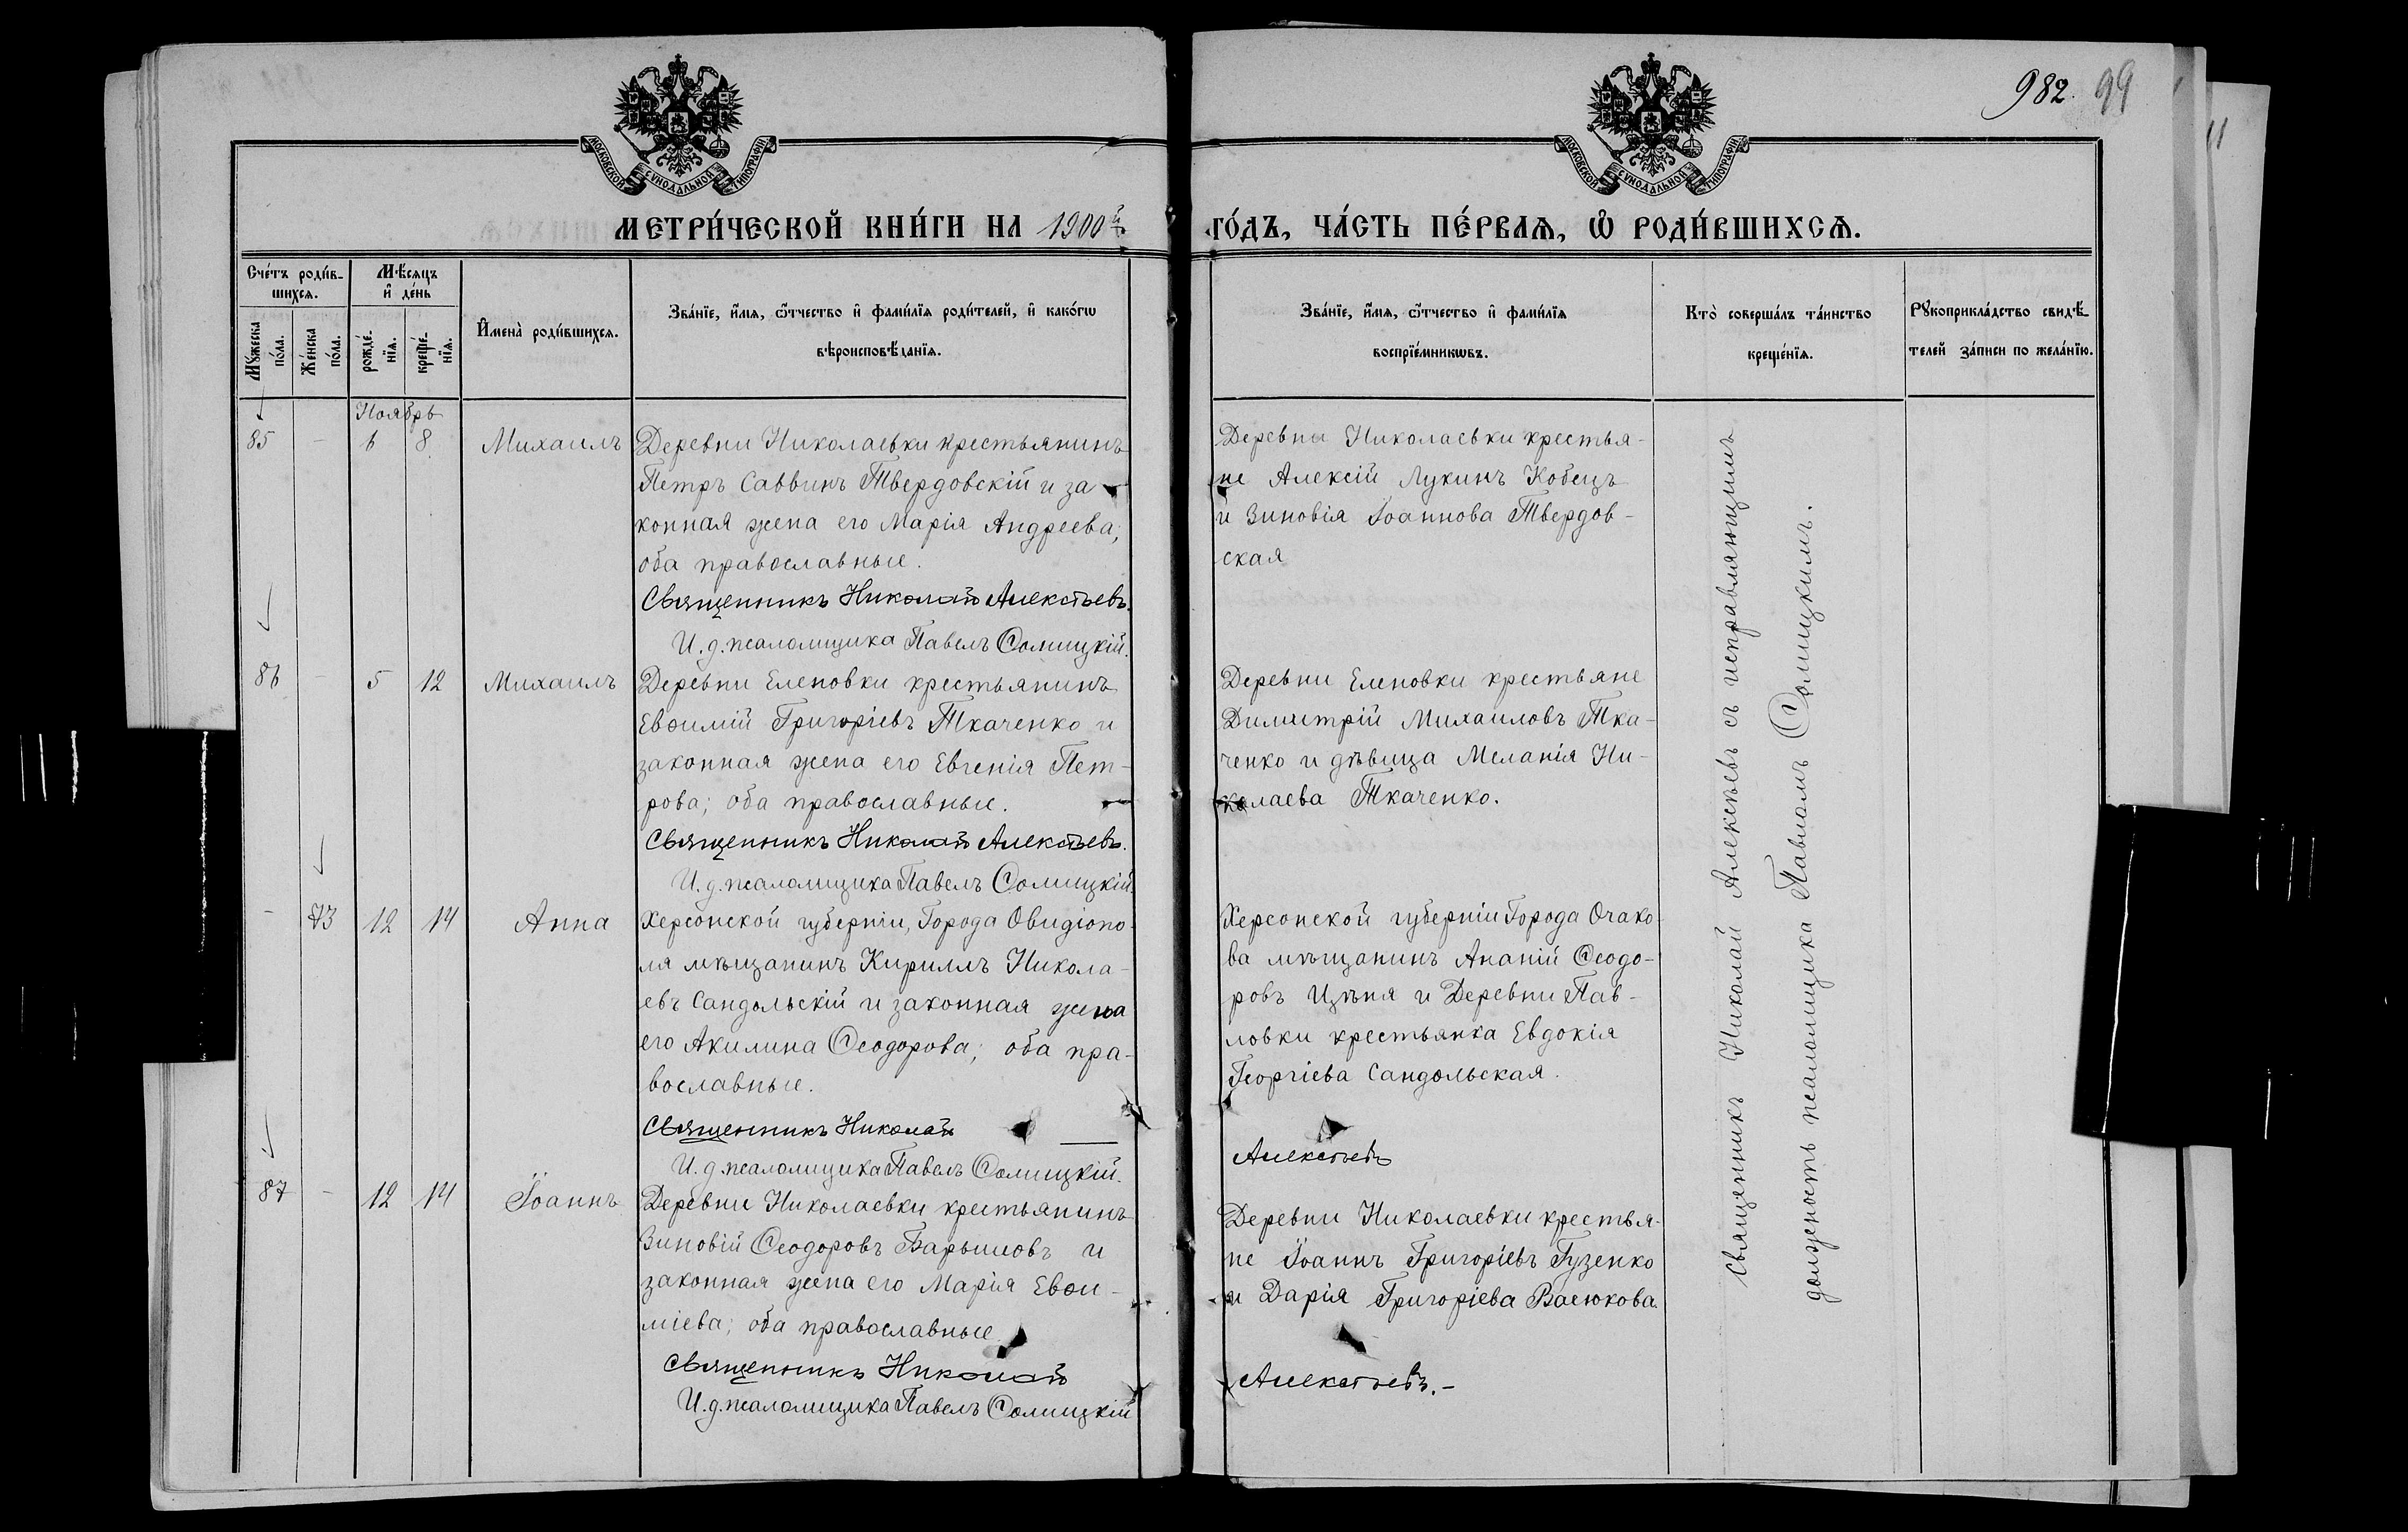 982. 99
МОСКОВСКОЙ СѴНОДАЛЬНОЙ ТИПОГРАФІИ
МОСКОВСКОЙ СѴНОДАЛЬНОЙ ТИПОГРАФІИ
МЕТРИ́ЧЕСКОЙ КНИ́ГИ НА 1900й
ГО́ДЪ, ЧА́СТЬ ПЕ́РВАѦ, Ѡ҆ РОДИ́ВШИХСѦ.
Сче́тъ роди́в-
шихсѧ.
Мꙋжеска
по́ла.
Же́нска
по́ла.
Мѣ́сѧцъ
и҆ де́нь
рожде́-
нїѧ.
креще́-
нїѧ.
И҆мена̀ роди́вшихсѧ.
Зва́нїе, и҆́мѧ, ѻ҆́тчество и҆ фами́лїѧ роди́телей, и҆ како́гѡ
вѣроисповѣ́данїѧ.
Зва́нїе, и҆́мѧ, ѻ҆́тчество и҆ фами́лїѧ
воспрїе́мникѡвъ.
Кто̀ соверша́лъ та́инство
креще́нїѧ.
Рꙋкоприкла́дство свидѣ́-
телей за́писи по жела́нїю.
Ноябрь
85 - 6 8 Михаилъ
Деревни Николаевки крестьянинъ
Петръ Саввинъ Твердовскій и за
конная жена его Марія Андреева;
оба православные.
Священникъ Николай Алексѣевъ.
И. д. псаломщика Павелъ Сомицкій.
Деревни Николаевки крестья-
не Алексій Лукинъ Кобецъ
и Зиновія Іоаннова Твердов-
ская
86 - 5 12 Михаилъ
Деревни Еленовки крестьянинъ
Евѳимій Григоріевъ Ткаченко и
законная жена его Евгенія Пет-
рова; оба православные.
Священникъ Николай Алексѣевъ.
И. д. псаломщика Павелъ Сомицкій.
Деревни Еленовки крестьяне
Димитрій Михаиловъ Тка-
ченко и дѣвица Меланія Ни-
колаева Ткаченко.
- 73 12 14 Анна
Херсонской губерніи, Города Овидіопо-
ля мѣщанинъ Кириллъ Никола-
евъ Сандольскій и законная жена
его Акилина Ѳеодорова; оба пра-
вославные.
Священникъ Николай
И. д. псаломщика Павелъ Сомицкій.
Херсонской губерніи Города Очако-
ва мѣщанинъ Ананій Ѳеодо-
ровъ Цѣпя и Деревни Пав-
ловки крестьянка Евдокія
Георгіева Сандольская.
Алексѣевъ
87 - 12 14 Іоаннъ
Деревни Николаевки крестьянинъ
Зиновій Ѳеодоровъ Барышовъ и
законная жена его Марія Евѳи-
міева; оба православные.
Священникъ Николай
И. д. псаломщика Павелъ Сомицкій
Деревни Николаевки крестья-
не Іоаннъ Григоріевъ Гузенко
и Дарія Григоріева Васюкова.
Алексѣевъ.-
Священникъ Николай Алексѣевъ съ исправляющимъ
должность псаломщика Павломъ Сомицкимъ.